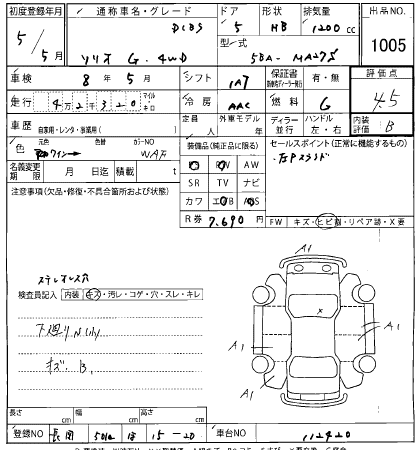 初度登録年月 通称車名・グレード DCBS ドア 形状 排気量 出品NO.
5/5月 ソリオ G. 4WD 5 HB 1200cc 1005
型式 5BA- MA27S
車検 8年 5月 シフト IAT 保証書 有・無 評価点
走行 42320 マイル キロ 冷房 AAC 燃料 G 4.5
車歴 自家用・レンタ・事業用( ) 定員 人 外車モデル 年 ディーラー 並行 ハンドル 左・右 内装評価 B
色 元色 色替 カラーNO 装備品(純正品に限る) セールスポイント(正常に機能するもの)
ワイン→ AW
名義変更期限 月 日迄 積載 t SR TV ナビ
注意事項(欠品・修復・不具合箇所および状態) カワ
R券 7,690 FW キズ・ヒビ・リペア跡・X要
A1
ステンレス穴
検査員記入 内装 キズ・汚レ・コゲ・穴・スレ・キレ
下廻り
キズ. B.
A1
A1
A1
長さ cm 幅 cm 高さ cm
登録NO 長岡 501 ほ 15-20 車台NO 112420